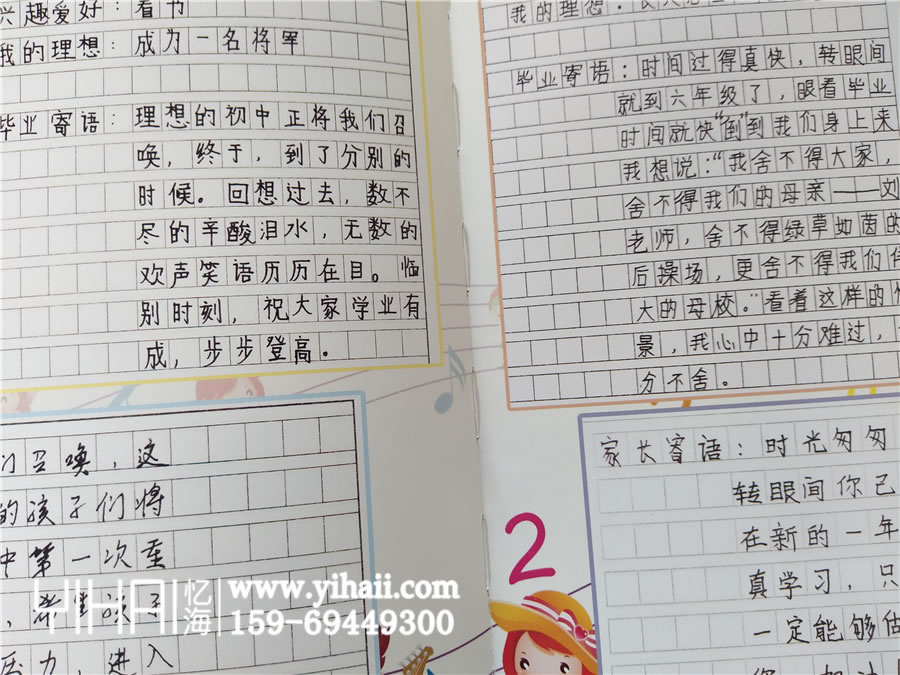 兴趣爱好：看书
我的理想：成为一名将军
毕业寄语：理想的初中正将我们召
唤，终于，到了分别的
时候。回想过去，数不
尽的辛酸泪水，无数的
欢声笑语历历在目。临
别时刻，祝大家学业有
成，步步登高。
们召唤，这
的孩子们将
中第一次至
，希望孩子
压力，进入
我的理想：
毕业寄语：时间过得真快，转眼间
就到六年级了，眼看毕业
时间就快“倒”到我们身上来
我想说：“我舍不得大家，
舍不得我们的母亲——刘
老师，舍不得绿草如茵的
后操场，更舍不得我们伟
大的母校。”看着这样的情
景，我心中十分难过，
分不舍。
家长寄语：时光匆匆
转眼间你已
在新的一年
真学习，只
一定能够做
2
YIHAI 忆海
www.yihaii.com
159-69449300